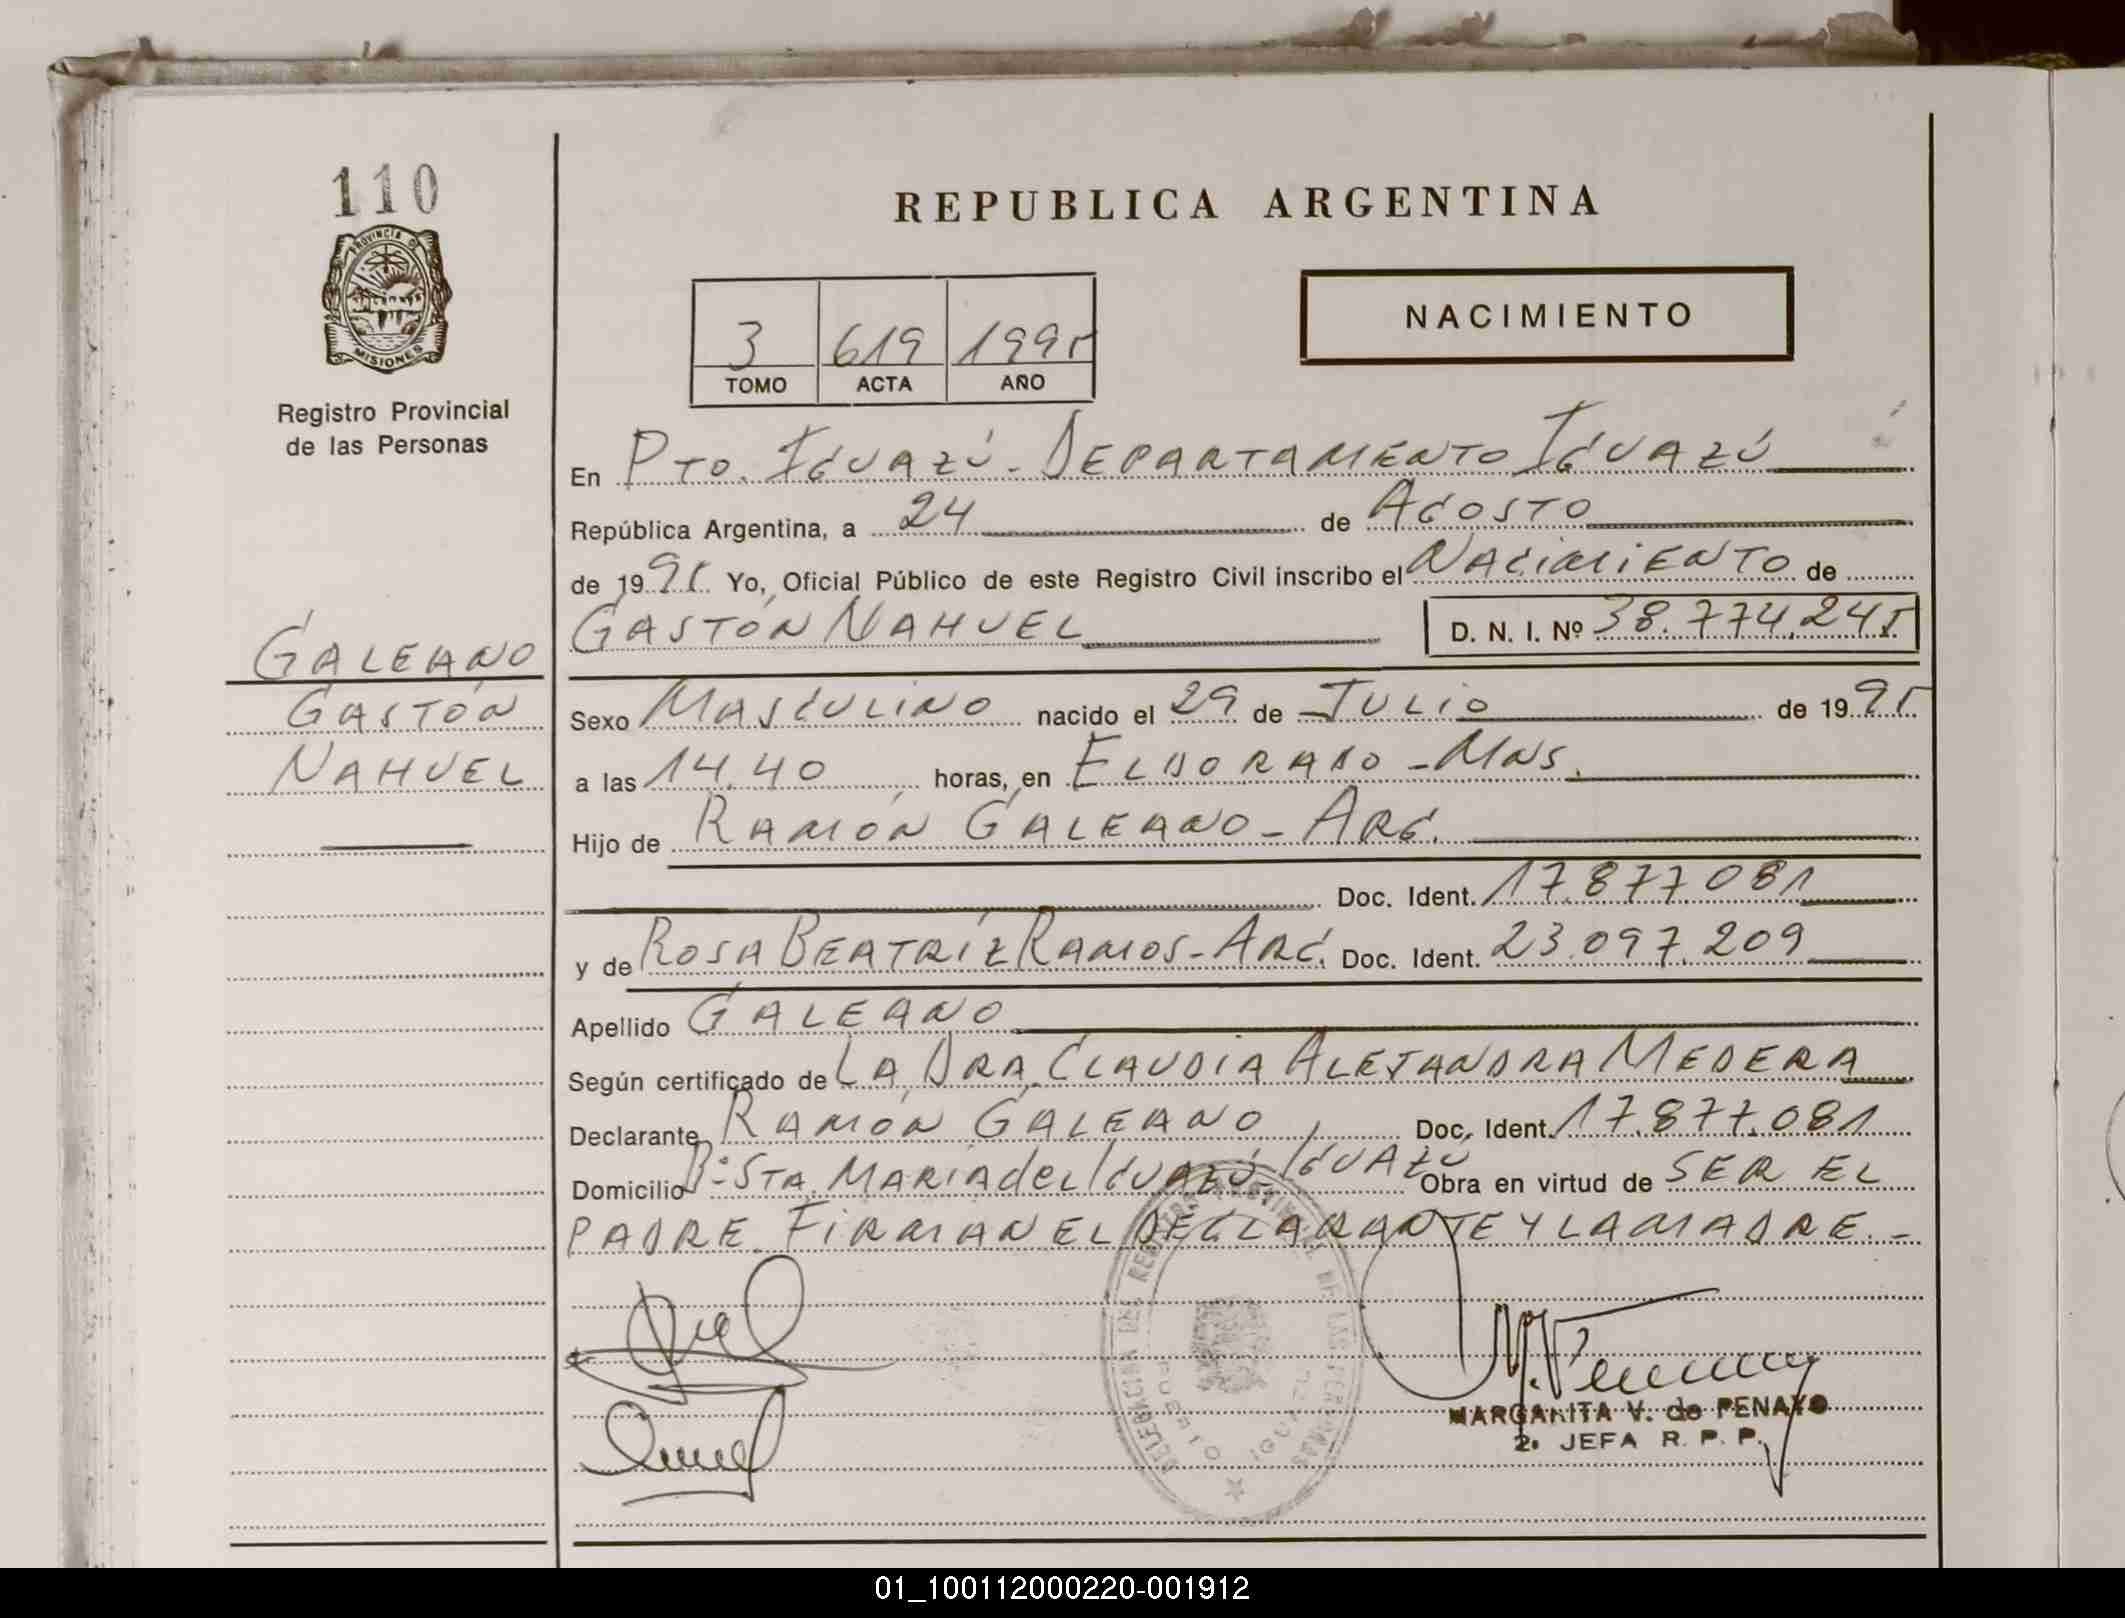 110
PROVINCIA DE
MISIONES
Registro Provincial
de las Personas
GALEANO
GASTÓN
NAHUEL
REPUBLICA ARGENTINA
3 619 1995
TOMO ACTA AÑO
NACIMIENTO
En PTO. IGUAZÚ - DEPARTAMENTO IGUAZÚ
República Argentina, a 24 de AGOSTO
de 1995 Yo, Oficial Público de este Registro Civil inscribo el NACIMIENTO de
GASTÓN NAHUEL D. N. I. Nº 38.774.245
Sexo MASCULINO nacido el 29 de JULIO de 1995
a las 14.40 horas, en ELDORADO - MNS.
Hijo de RAMÓN GALEANO - ARG.
Doc. Ident. 17.877.081
y de ROSA BEATRÍZ RAMOS - ARG. Doc. Ident. 23.097.209
Apellido GALEANO
Según certificado de LA DRA. CLAUDIA ALEJANDRA MEDERA
Declarante RAMÓN GALEANO Doc. Ident. 17.877.081
Domicilio Bº STA. MARÍA del IGUAZÚ - IGUAZÚ Obra en virtud de SER EL
PADRE. FIRMAN EL DECLARANTE Y LA MADRE. -
MARGARITA V. de PENAYO
2ª JEFA R. P. P.
01_100112000220-001912